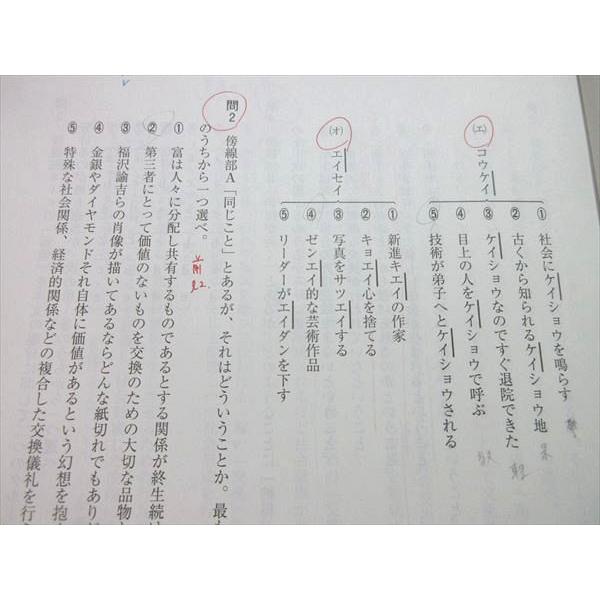 (エ) コウケイ
① 社会にケイショウを鳴らす
② 古くから知られるケイショウ地
③ ケイショウなのですぐ退院できた
④ 目上の人をケイショウで呼ぶ
⑤ 技術が弟子へとケイショウされる
(オ) エイセイ
① 新進キエイの作家
② キョエイ心を捨てる
③ 写真をサツエイする
④ ゼンエイ的な芸術作品
⑤ リーダーがエイダンを下す
問2 傍線部A「同じこと」とあるが、それはどういうことか。最
のうちから一つ選べ。
① 富は人々に分配し共有するものであるとする関係が終生続
② 第三者にとって価値のないものを交換のための大切な品物
③ 福沢諭吉らの肖像が描いてあるならどんな紙切れでもあり
④ 金銀やダイヤモンドそれ自体に価値があるという幻想を抱
⑤ 特殊な社会関係、経済的関係などの複合した交換儀礼を行